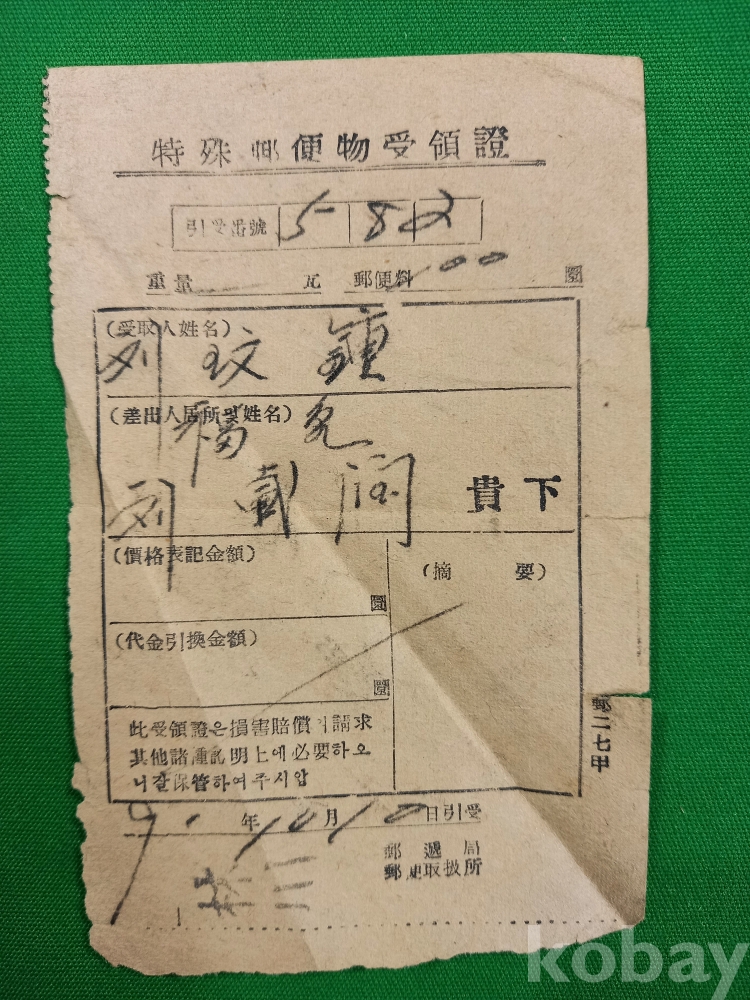 特殊郵便物受領證
引受番號 5 8 2
重量 瓦 郵便料 00 圓
(受取人姓名)
玟
(差出人居所및姓名)
貴下
(價格表記金額)
圓
(摘要)
(代金引換金額)
圓
此受領證은損害賠償의請求
其他諸種證明上에必要하오
니잘保管하여주시압
郵二七甲
9. 年 10 月 10 日引受
郵遞局
郵便取扱所
kobay